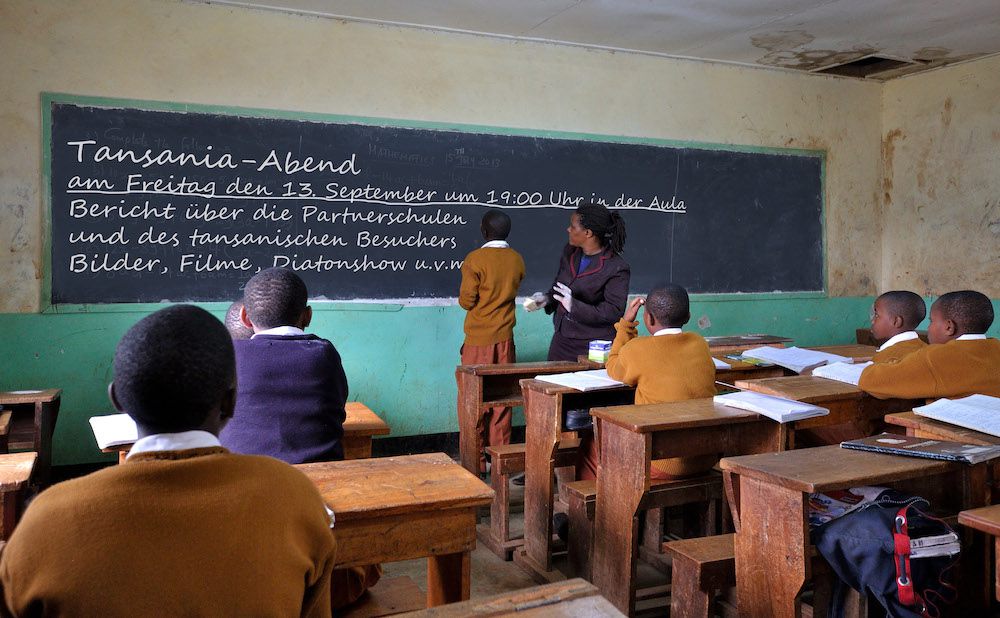 Tansania-Abend
am Freitag den 13. September um 19:00 Uhr in der Aula
Bericht über die Partnerschulen
und des tansanischen Besuchers
Bilder, Filme, Diatonshow u.v.m
MATHEMATICS 15TH 2013